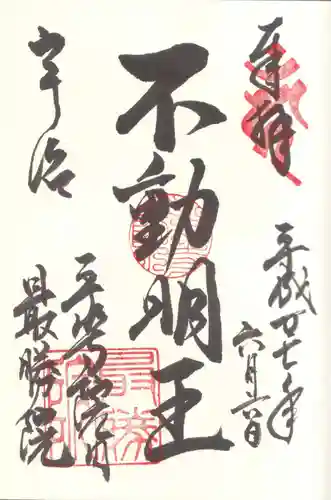 奉拝
平成廿七年
六月六日
不動明王
宇治
平等院内
最勝院